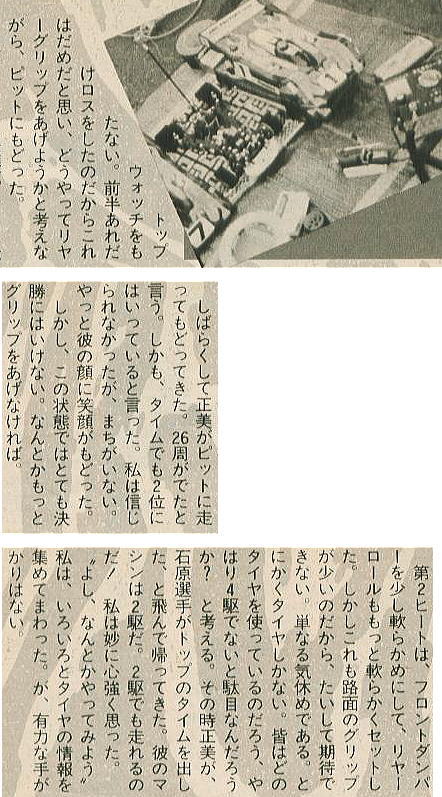 トップ
ウォッチをも
たない。前半あれだ
けロスをしたのだからこれ
はだめだと思い、どうやってリヤ
ーグリップをあげようかと考えな
がら、ピットにもどった。
しばらくして正美がピットに走
ってもどってきた。26周がでたと
言う。しかも、タイムでも2位に
はいっていると言った。私は信じ
られなかったが、まちがいない。
やっと彼の顔に笑顔がもどった。
しかし、この状態ではとても決
勝にはいけない。なんとかもっと
グリップをあげなければ。
第2ヒートは、フロントダンパ
ーを少し軟らかめにして、リヤー
ロールももっと軟らかくセットし
た。しかしこれも路面のグリップ
が少いのだから、たいして期待で
きない。単なる気休めである。と
にかくタイヤしかない。皆はどの
タイヤを使っているのだろう、や
はり4駆でないと駄目なんだろう
か？　と考える。その時正美が、
石原選手がトップのタイムを出し
た、と飛んで帰ってきた。彼のマ
シンは2駆だ。2駆でも走れるの
だ！　私は妙に心強く思った。
“よし、なんとかやってみよう”
私は、いろいろとタイヤの情報を
集めてまわった。が、有力な手が
かりはない。